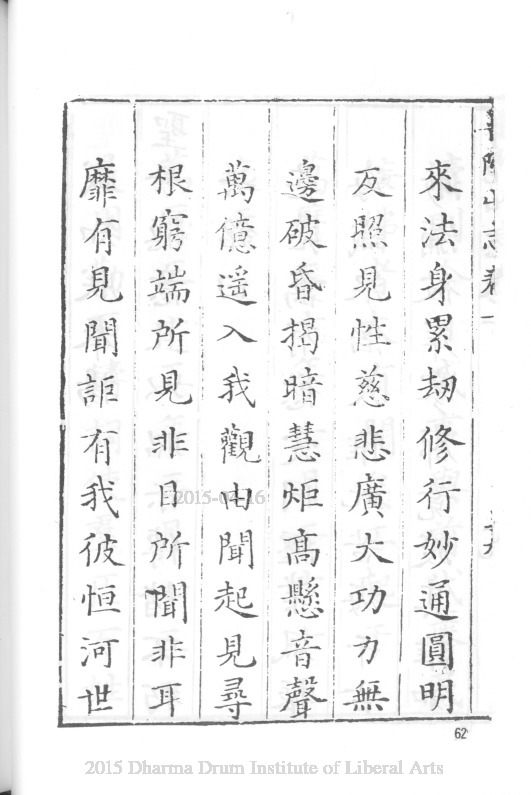 來法身累劫修行妙通圓明
反照見性慈悲廣大功力無
邊破昏揭暗慧炬高懸音聲
萬億遥入我觀由聞起見尋
根窮端所見非目所聞非耳
靡有見聞詎有我彼恒河世
62
2015-07-16
2015 Dharma Drum Institute of Liberal Arts